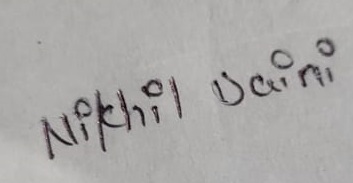 Nikhil Saini